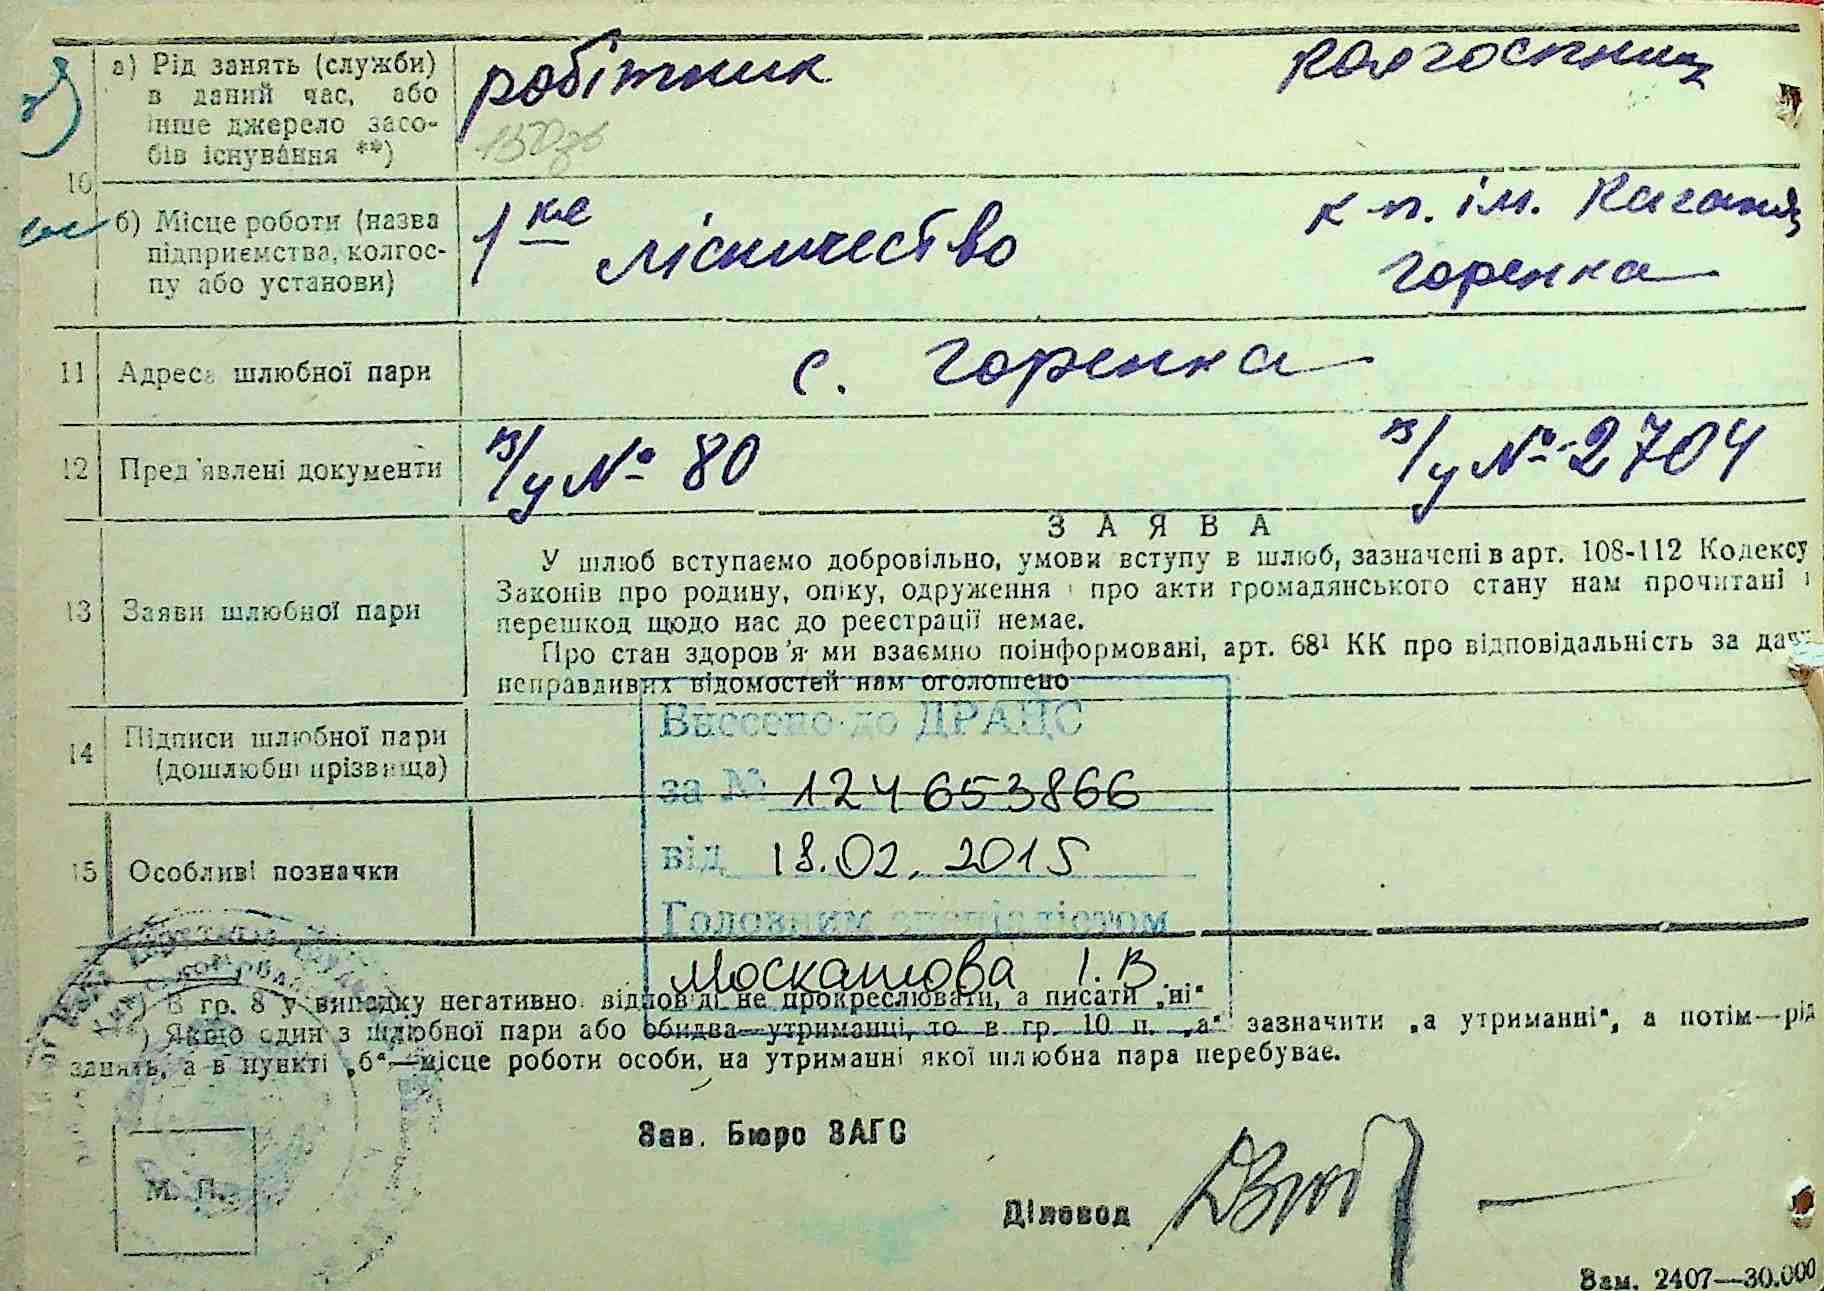 а) Рід занять (служби)
в даний час, або
інше джерело засо-
бів існування **)
робітник
колгоспниц
10
б) Місце роботи (назва
підприємства, колгос-
пу або установи)
1 ке лісництество
к п. ім. Кагано
Горенка
11 Адреса шлюбної пари
с. Горенка
12 Пред'явлені документи
п/у № 80
п/у № 2704
ЗАЯВА
13 Заяви шлюбної пари
У шлюб вступаємо добровільно, умови вступу в шлюб, зазначені в арт. 108-112 Кодексу
Законів про родину, опіку, одруження і про акти громадянського стану нам прочитані і
перешкод щодо нас до реєстрації немає.
Про стан здоров'я ми взаємно поінформовані, арт. 68¹ КК про відповідальність за дачу
неправдивих відомостей нам оголошено
14 Підписи шлюбної пари
(дошлюбні прізвища)
Внесено до ДРАЦС
за № 124653866
від 18.02.2015
15 Особливі позначки
Головним спеціалістом
Москатова І.В.
*) В гр. 8 у випадку негативно відповіді не прокреслювати, а писати „ні“
) Якщо один з шлюбної пари або обидва—утриманці, то в гр. 10 п. „а“ зазначити „а утриманні“, а потім—рід
занять, а в пункті „б“—місце роботи особи, на утриманні якої шлюбна пара перебуває.
Зав. Бюро ЗАГС
М. П.
Діловод
Зам. 2407—30.000